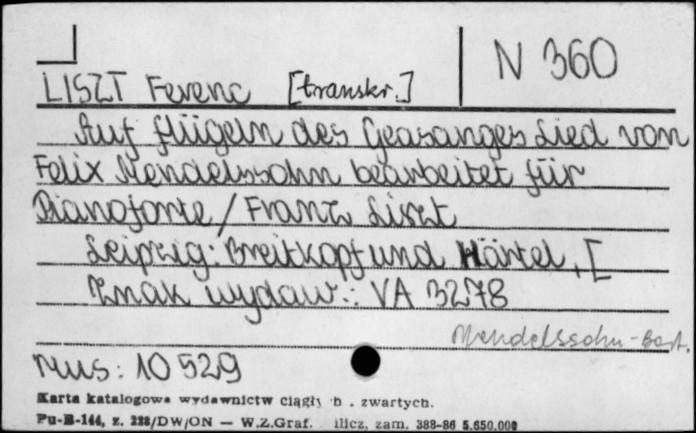 N 360
LISZT Ferenc [transkr.]
Auf flügeln des Geasanges Lied von
Felix Mendelssohn bearbeitet für
Pianoforte / Franz Liszt
Leipzig: Breitkopf und Härtel, [
Znak wydaw.: VA 3278
Mendelssohn-Bart.
Mus: 10 529
Karta katalogowa wydawnictw ciągły zwartych.
Pu-B-144, z. 228/DW/ON — W.Z.Graf. zam. 388-86 5.650.000